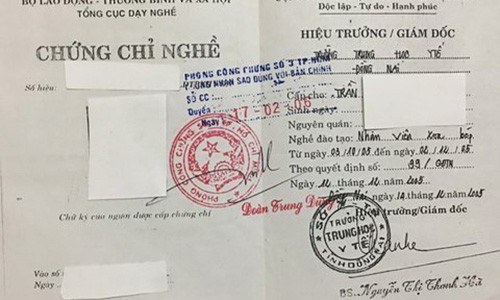 BỘ LAO ĐỘNG - THƯƠNG BINH VÀ XÃ HỘI
TỔNG CỤC DẠY NGHỀ
CHỨNG CHỈ NGHỀ
Số hiệu:
Chữ ký của người được cấp chứng chỉ
Vào số
Ngày
PHÒNG CÔNG CHỨNG SỐ 3 TP.HCM
CHỨNG NHẬN SAO ĐÚNG VỚI BẢN CHÍNH
SỐ CC:
Quyển
Ngày
17-02-06
Đoàn Trung Dũng
Độc lập - Tự do - Hạnh phúc
HIỆU TRƯỞNG / GIÁM ĐỐC
TRƯỜNG TRUNG HỌC Y TẾ
ĐỒNG NAI
Cấp cho: TRẦN
Sinh ngày:
Nguyên quán:
Nghề đào tạo: Nhân viên Xoa bóp
Từ ngày 03/10/05 đến ngày
Theo quyết định số: 99/
Ngày 14 tháng 12 năm 2005
ngày 14 tháng 12 năm 2005
Hiệu trưởng/Giám đốc
TRƯỜNG
TRUNG HỌC
Y TẾ
TỈNH ĐỒNG NAI
BS. Nguyễn Thị Thanh Hà